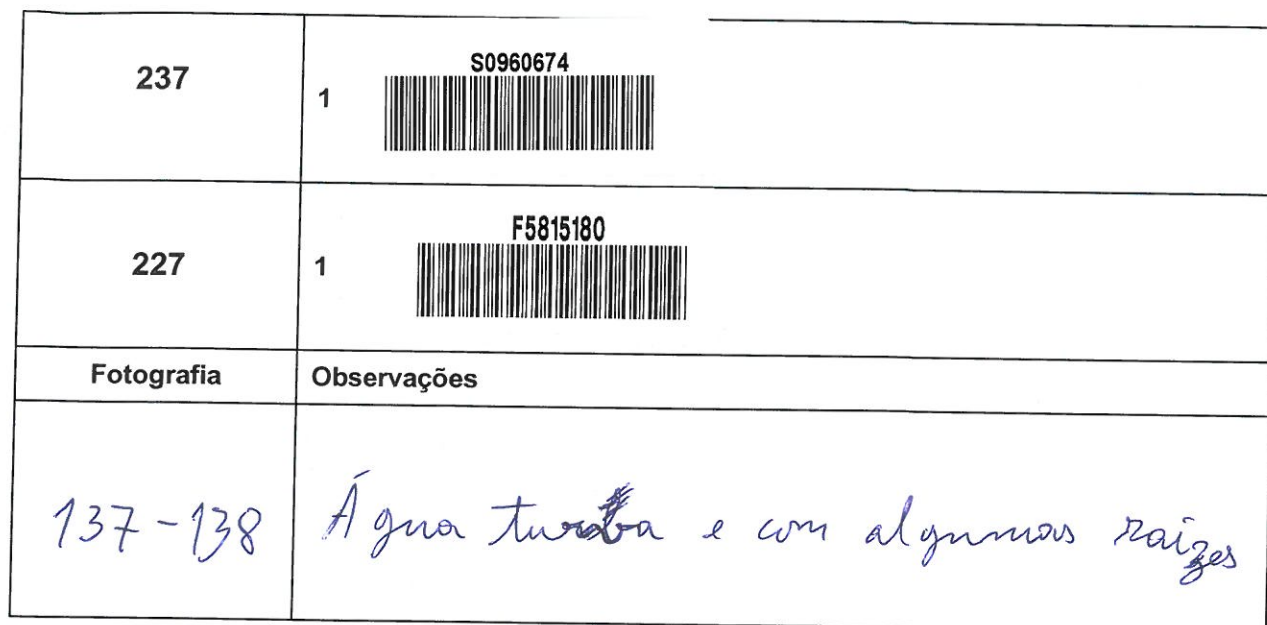 237
1
S0960674
227
1
F5815180
Fotografia Observações
137-138 Água turba e com algumas raízes